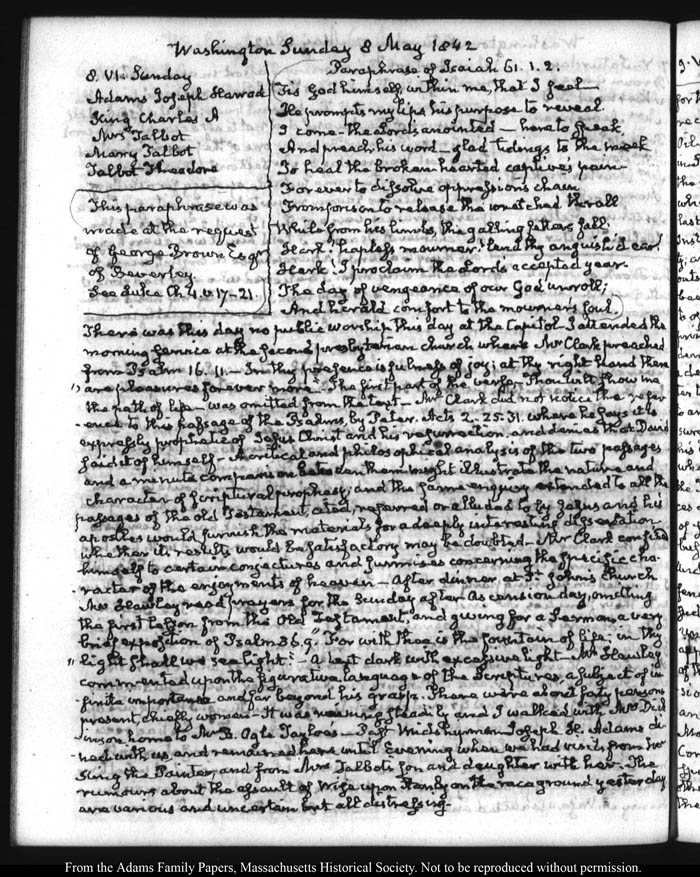 Washington Sunday 8 May 1842
8. VI. Sunday
Adams Joseph Harrod
King Charles A
Mrs Talbot
Marry Talbot
Talbot Theodore
This paraphrase was
made at the request
of George Brown Esqr
of Beverley.
See Luke Ch. 4. v. 17-21.
Paraphrase of Isaiah 61. 1. 2.
Tis God himself, within me, that I feel
He prompts my lips his purpose to reveal
I come the Lords anointed — here to speak,
And preach his word — glad tidings to the meek
To heal the broken hearted captive's pain
For ever to dissolve oppression's chain
From prison to release the wretched thrall
While from his limbs, the galling fetters fall.
Hark! hapless mourner! lend thy anguish'd ear!
Hark! I proclaim the Lords accepted year.
The day of vengeance of our God unroll;
And herald comfort to the mourner's soul.
There was this day no public worship this day at the Capitol. I attended the
morning service at the second presbyterian church where Mr Clark preached
from Psalm 16. 11. — In thy presence is fulness of joy; at thy right hand there
" are pleasures forever more" — The first part of the verse, Thou wilt show me
the path of life — was omitted from the text — Mr Clark did not notice the refer
-ence to this passage of the Psalms, by Peter. Acts 2. 25-31. where he says it is
expressly prophetic of Jesus Christ and his resurrection. and denies that David
said it of himself — A critical and philosophical analysis of the two passages
and a minute comparison between them might illustrate the nature and
character of scriptural prophesy; and the same enquiry extended to all the
passages of the Old Testament, cited, referred or alluded to by Jesus and his
apostles would furnish the materials for a deeply interesting dissertation
whether its results would be satisfactory may be doubted — Mr Clark confined
himself to certain conjectures and surmises concerning the specific cha-
racter of the enjoyments of heaven — After dinner at St. John's Church
Mr Hawley read prayers for the Sunday after Ascension day, omitting
the first lesson from the Old Testament, and giving for a Sermon a very
brief exposition of Psalm 36. 9. "For with thee is the fountain of life: in thy
" light shall we see light" — A text dark with excessive light — Mr Hawley
commented upon the figurative language of the Scriptures, a subject of in
finite importance and far beyond his grasp. There were about forty persons
present, chiefly women — It was raining steadily and I walked with Mrs
home to Mr B. Ogle Tayloe's — Past Midshipman Joseph H. Adams di
ned with us, and remained here until Evening when we had visits from Mr
King the Painter, and from Mrs Talbot's son and daughter with her. The
rumours about the assault of Wise upon Stanly on the race ground yesterday
are various and uncertain but all distressing.
From the Adams Family Papers, Massachusetts Historical Society. Not to be reproduced without permission.